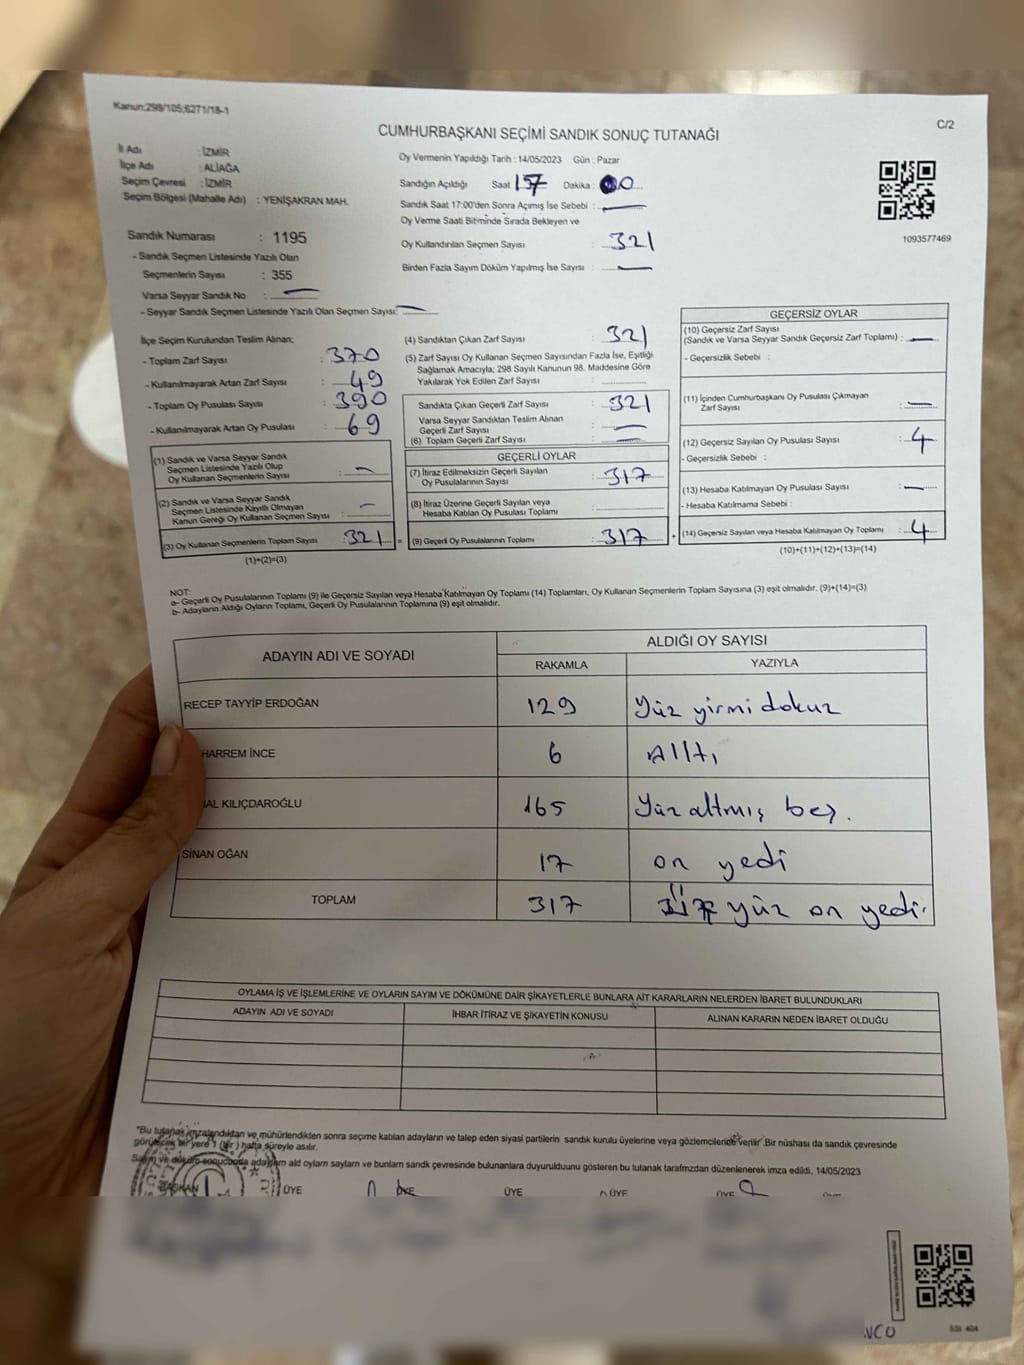 Kanun;298/105;6271/18-1
C/2
CUMHURBAŞKANI SEÇİMİ SANDIK SONUÇ TUTANAĞI
İl Adı : İZMİR
İlçe Adı : ALİAĞA
Seçim Çevresi : İZMİR
Seçim Bölgesi (Mahalle Adı) : YENİŞAKRAN MAH.
Sandık Numarası : 1195
- Sandık Seçmen Listesinde Yazılı Olan
Seçmenlerin Sayısı : 355
Varsa Seyyar Sandık No : —
- Seyyar Sandık Seçmen Listesinde Yazılı Olan Seçmen Sayısı: —
Oy Vermenin Yapıldığı Tarih : 14/05/2023 Gün : Pazar
Sandığın Açıldığı Saat 17 Dakika : 00
Sandık Saat 17:00'den Sonra Açımış İse Sebebi : —
Oy Verme Saati Bitiminde Sırada Bekleyen ve
Oy Kullandırılan Seçmen Sayısı : 321
Birden Fazla Sayım Döküm Yapılmış İse Sayısı : —
1093577469
İlçe Seçim Kurulundan Teslim Alınan;
- Toplam Zarf Sayısı : 370
- Kullanılmayarak Artan Zarf Sayısı : 49
- Toplam Oy Pusulası Sayısı : 390
- Kullanılmayarak Artan Oy Pusulası : 69
(1) Sandık ve Varsa Seyyar Sandık
Seçmen Listesinde Yazılı Olup
Oy Kullanan Seçmenlerin Sayısı : —
(2) Sandık ve Varsa Seyyar Sandık
Seçmen Listesinde Kayıtlı Olmayan
Kanun Gereği Oy Kullanan Seçmen Sayısı : —
(3) Oy Kullanan Seçmenlerin Toplam Sayısı : 321
(1)+(2)=(3)
(4) Sandıktan Çıkan Zarf Sayısı : 321
(5) Zarf Sayısı Oy Kullanan Seçmen Sayısından Fazla İse, Eşitliği
Sağlamak Amacıyla; 298 Sayılı Kanunun 98. Maddesine Göre
Yakılarak Yok Edilen Zarf Sayısı :
Sandıkta Çıkan Geçerli Zarf Sayısı : 321
Varsa Seyyar Sandıktan Teslim Alınan
Geçerli Zarf Sayısı : —
(6) Toplam Geçerli Zarf Sayısı : —
GEÇERLİ OYLAR
(7) İtiraz Edilmeksizin Geçerli Sayılan
Oy Pusulalarının Sayısı : 317
(8) İtiraz Üzerine Geçerli Sayılan veya
Hesaba Katılan Oy Pusulası Toplamı :
= (9) Geçerli Oy Pusulalarının Toplamı : 317
GEÇERSİZ OYLAR
(10) Geçersiz Zarf Sayısı
(Sandık ve Varsa Seyyar Sandık Geçersiz Zarf Toplamı) : —
- Geçersizlik Sebebi :
(11) İçinden Cumhurbaşkanı Oy Pusulası Çıkmayan
Zarf Sayısı : —
(12) Geçersiz Sayılan Oy Pusulası Sayısı : 4
- Geçersizlik Sebebi :
(13) Hesaba Katılmayan Oy Pusulası Sayısı : —
- Hesaba Katılmama Sebebi :
+ (14) Geçersiz Sayılan veya Hesaba Katılmayan Oy Toplamı : 4
(10)+(11)+(12)+(13)=(14)
NOT:
a- Geçerli Oy Pusulalarının Toplamı (9) ile Geçersiz Sayılan veya Hesaba Katılmayan Oy Toplamı (14) Toplamları, Oy Kullanan Seçmenlerin Toplam Sayısına (3) eşit olmalıdır. (9)+(14)=(3)
b- Adayların Aldığı Oyların Toplamı, Geçerli Oy Pusulalarının Toplamına (9) eşit olmalıdır.
ADAYIN ADI VE SOYADI
ALDIĞI OY SAYISI
RAKAMLA YAZIYLA
RECEP TAYYİP ERDOĞAN 129 Yüz yirmi dokuz
HARREM İNCE 6 Alltı
AL KILIÇDAROĞLU 165 Yüz altmış beş.
SİNAN OĞAN 17 on yedi
TOPLAM 317 yüz on yedi.
OYLAMA İŞ VE İŞLEMLERİNE VE OYLARIN SAYIM VE DÖKÜMÜNE DAİR ŞİKAYETLERLE BUNLARA AİT KARARLARIN NELERDEN İBARET BULUNDUKLARI
ADAYIN ADI VE SOYADI İHBAR İTİRAZ VE ŞİKAYETİN KONUSU ALINAN KARARIN NEDEN İBARET OLDUĞU
"Bu tutanak imzalandıktan ve mühürlendikten sonra seçime katılan adayların ve talep eden siyasi partilerin sandık kurulu üyelerine veya gözlemcileride verilir .Bir nüshası da sandık çevresinde
görülecek bir yere 1 (bir) hafta süreyle asılır.
Sayım ve döküm sonucunda adayların ald oyların sayların ve bunların sandık çevresinde bulunanlara duyurulduunu gösteren bu tutanak tarafmzdan düzenlenerek imza edildi, 14/05/2023
BAŞKAN ÜYE ÜYE ÜYE ÜYE ÜYE